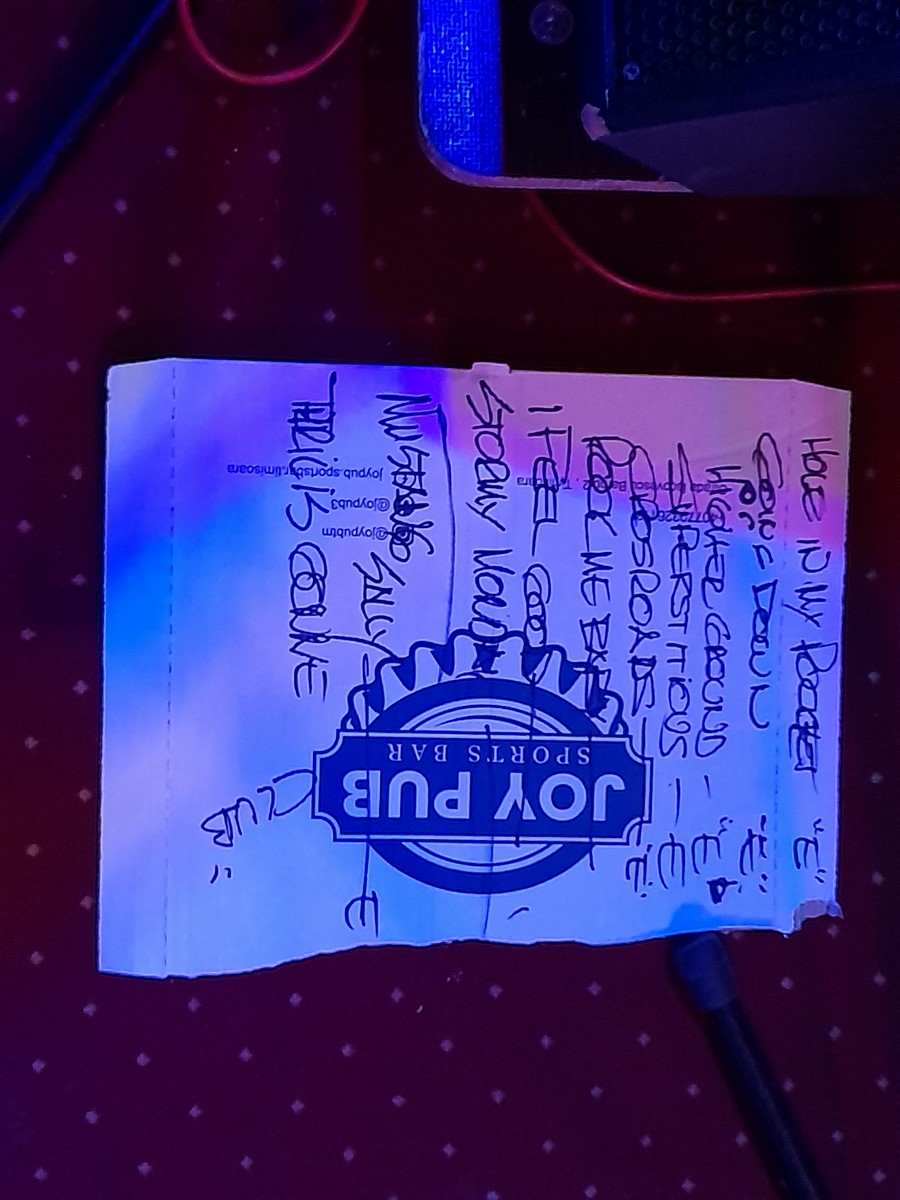 HOLE IN MY POCKET "E"
GOING DOWN "E"
HIGHER GROUND - "E"
SUPERSTITIOUS - E
CROSSROADS - E
ROCK ME BABY
I FEEL GOOD
STORMY MONDAY
MUSTANG SALLY - E
THRILL IS GONNE
CLUB
JOY PUB
SPORTS BAR
@joypubtm
@joypub3
joypub.sportsbar.timisoara